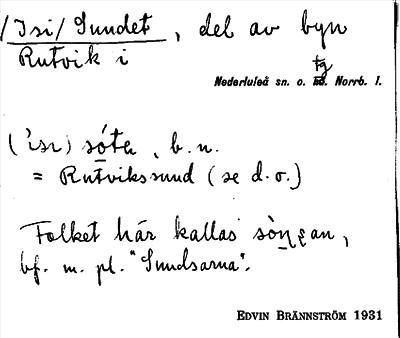 /Isi/ Sundet, del av byn
Rutvik i
tg
Nederluleå sn. o. sd. Norrb. l.
('ɪsɪ) sóta, b. n.
= Rutvikssund (se d. o.)
Folket här kallas
bf. m. pl. "Sundsarna".
EDVIN BRÄNNSTRÖM 1931